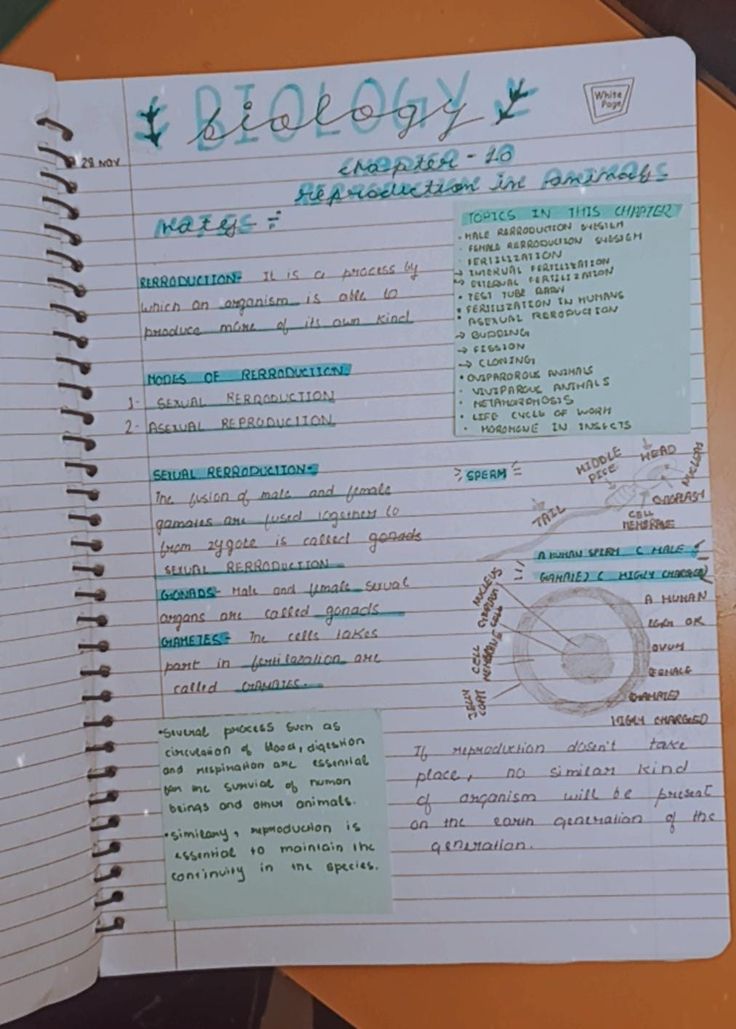 BIOLOGY
biology
White
Page
29 NOV
Chapter - 10
Reproduction in Animals
Notes :-
TOPICS IN THIS CHAPTER
• MALE RERRODUCTION SYSTEM
• FEMALE RERRODUCTION SYSTEM
• FERILIZATION
→ INTERNAL FERILIZATION
→ EXTERNAL FERILIZATION
• TEST TUBE BABY
• FERILIZATION IN HUMANS
• ASEXUAL REPRODUCTION
→ BUDDING
→ FISSION
→ CLONING
• OVIPAROROUS ANIMALS
• VIVIPAROUS ANIMALS
• METAMORMOSIS
• LIFE CYCLE OF WORM
• HORMONE IN INSECTS
RERRODUCTION- It is a process by
which an organism is able to
produce more of its own kind
MODES OF RERRODUCTION
1- SEXUAL RERRODUCTION
2- ASEXUAL REPRODUCTION
SEXUAL RERRODUCTION-
The fusion of male and female
gamates are fused together to
from zygote is called gonads
SEXUAL RERRODUCTION
GONADS- Male and female sexual
organs are called gonads
GAMETES- The cells takes
part in fertilazation are
called GAMATES.
SPERM
HEAD
MIDDLE
PICE
NUCLEUS
TAIL
CELL
MEMBRANE
A HUMAN SPERM ( MALE
GAMATE) ( HIGLY CHARGED)
NUCLEUS
CELL
MEMBRANE
JELLY
COAT
A HUMAN
EGG OR
OVUM
FEMALE
GAMATE)
HIGLY CHARGED
•Several process such as
circulation of blood, digestion
and respiration are essential
for the survial of human
beings and other animals.
•Similary, reproduction is
essential to maintain the
continuity in the species.
If reproduction dosen't take
place, no similar kind
of organism will be present
on the earth generation of the
generation.